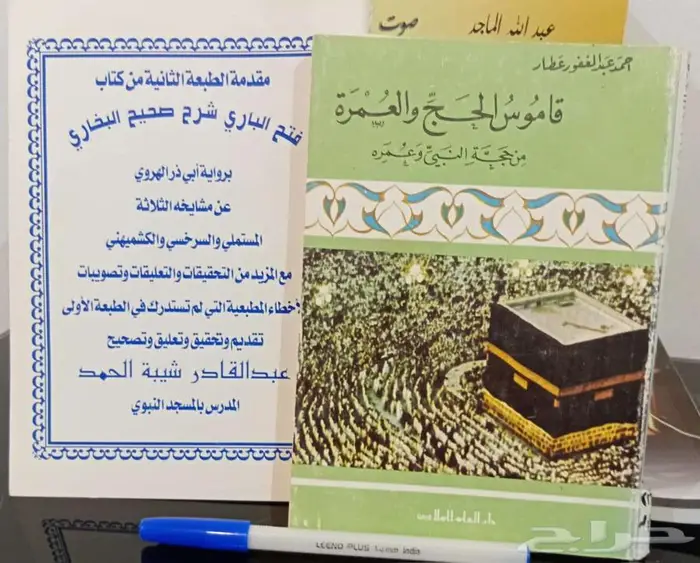 عبد الله الماجد
صوت
مقدمة الطبعة الثانية من كتاب
فتح الباري شرح صحيح البخاري
برواية أبي ذر الهروي
عن مشايخه الثلاثة
المستملي والسرخسي والكشميهني
مع المزيد من التحقيقات والتعليقات وتصويبات
الأخطاء المطبعية التي لم تستدرك في الطبعة الأولى
تقديم وتحقيق وتعليق وتصحيح
عبدالقادر شيبة الحمد
المدرس بالمسجد النبوي
احمد عبد الغفور عطار
قاموس الحج والعمرة
من حجة النبي وعمره
دار العلم للملايين
LEENO PLUS
India
حراج